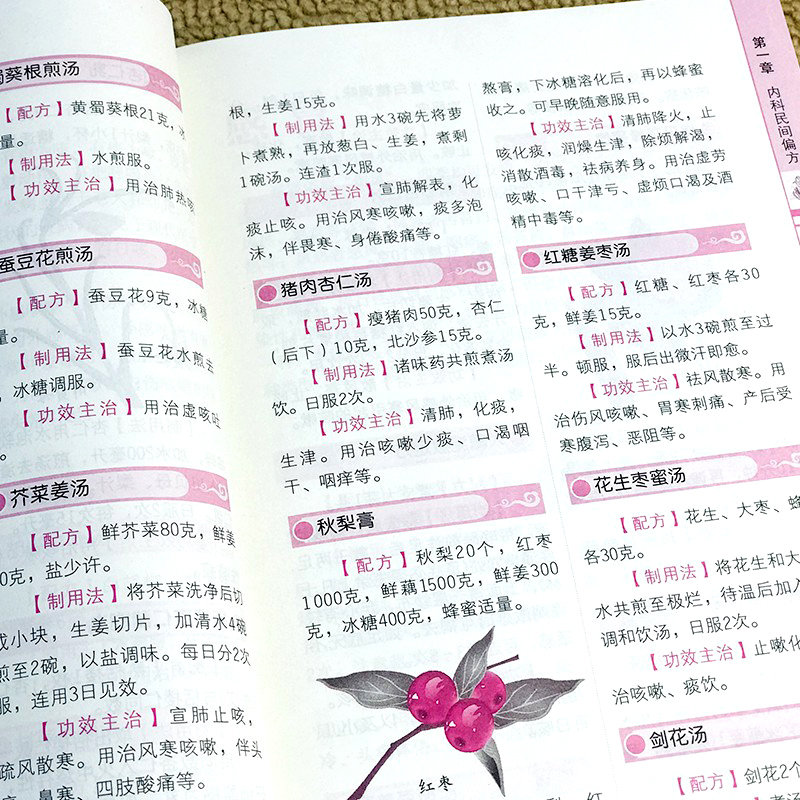 蜀葵根煎汤
【配方】黄蜀葵根21克，冰
量。
【制用法】水煎服。
【功效主治】用治肺热咳
蚕豆花煎汤
【配方】蚕豆花9克，冰糖
量。
【制用法】蚕豆花水煎去
，冰糖调服。
【功效主治】用治虚咳吐
。
芥菜姜汤
【配方】鲜芥菜80克，鲜姜
0克，盐少许。
【制用法】将芥菜洗净后切
成小块，生姜切片，加清水4碗
煎至2碗，以盐调味。每日分2次
服，连用3日见效。
【功效主治】宣肺止咳，
疏风散寒。用治风寒咳嗽，伴头
、鼻塞、四肢酸痛等。
根，生姜15克。
【制用法】用水3碗先将萝
卜煮熟，再放葱白、生姜，煮剩
1碗汤。连渣1次服。
【功效主治】宣肺解表，化
痰止咳。用治风寒咳嗽，痰多泡
沫，伴畏寒、身倦酸痛等。
猪肉杏仁汤
【配方】瘦猪肉50克，杏仁
（后下）10克，北沙参15克。
【制用法】诸味药共煎煮汤
饮。日服2次。
【功效主治】清肺，化痰，
生津。用治咳嗽少痰、口渴咽
干、咽痒等。
秋梨膏
【配方】秋梨20个，红枣
1000克，鲜藕1500克，鲜姜300
克，冰糖400克，蜂蜜适量。
红枣
熬膏，下冰糖溶化后，再以蜂蜜
收之。可早晚随意服用。
【功效主治】清肺降火，止
咳化痰，润燥生津，除烦解渴，
消散酒毒，祛病养身。用治虚劳
咳嗽、口干津亏、虚烦口渴及酒
精中毒等。
红糖姜枣汤
【配方】红糖、红枣各30
克，鲜姜15克。
【制用法】以水3碗煎至过
半。顿服，服后出微汗即愈。
【功效主治】祛风散寒。用
治伤风咳嗽、胃寒刺痛、产后受
寒腹泻、恶阻等。
花生枣蜜汤
【配方】花生、大枣、蜂
各30克。
【制用法】将花生和大
水共煎至极烂，待温后加入
调和饮汤，日服2次。
【功效主治】止嗽化
治咳嗽、痰饮。
剑花汤
【配方】剑花2个
第一章 内科民间偏方